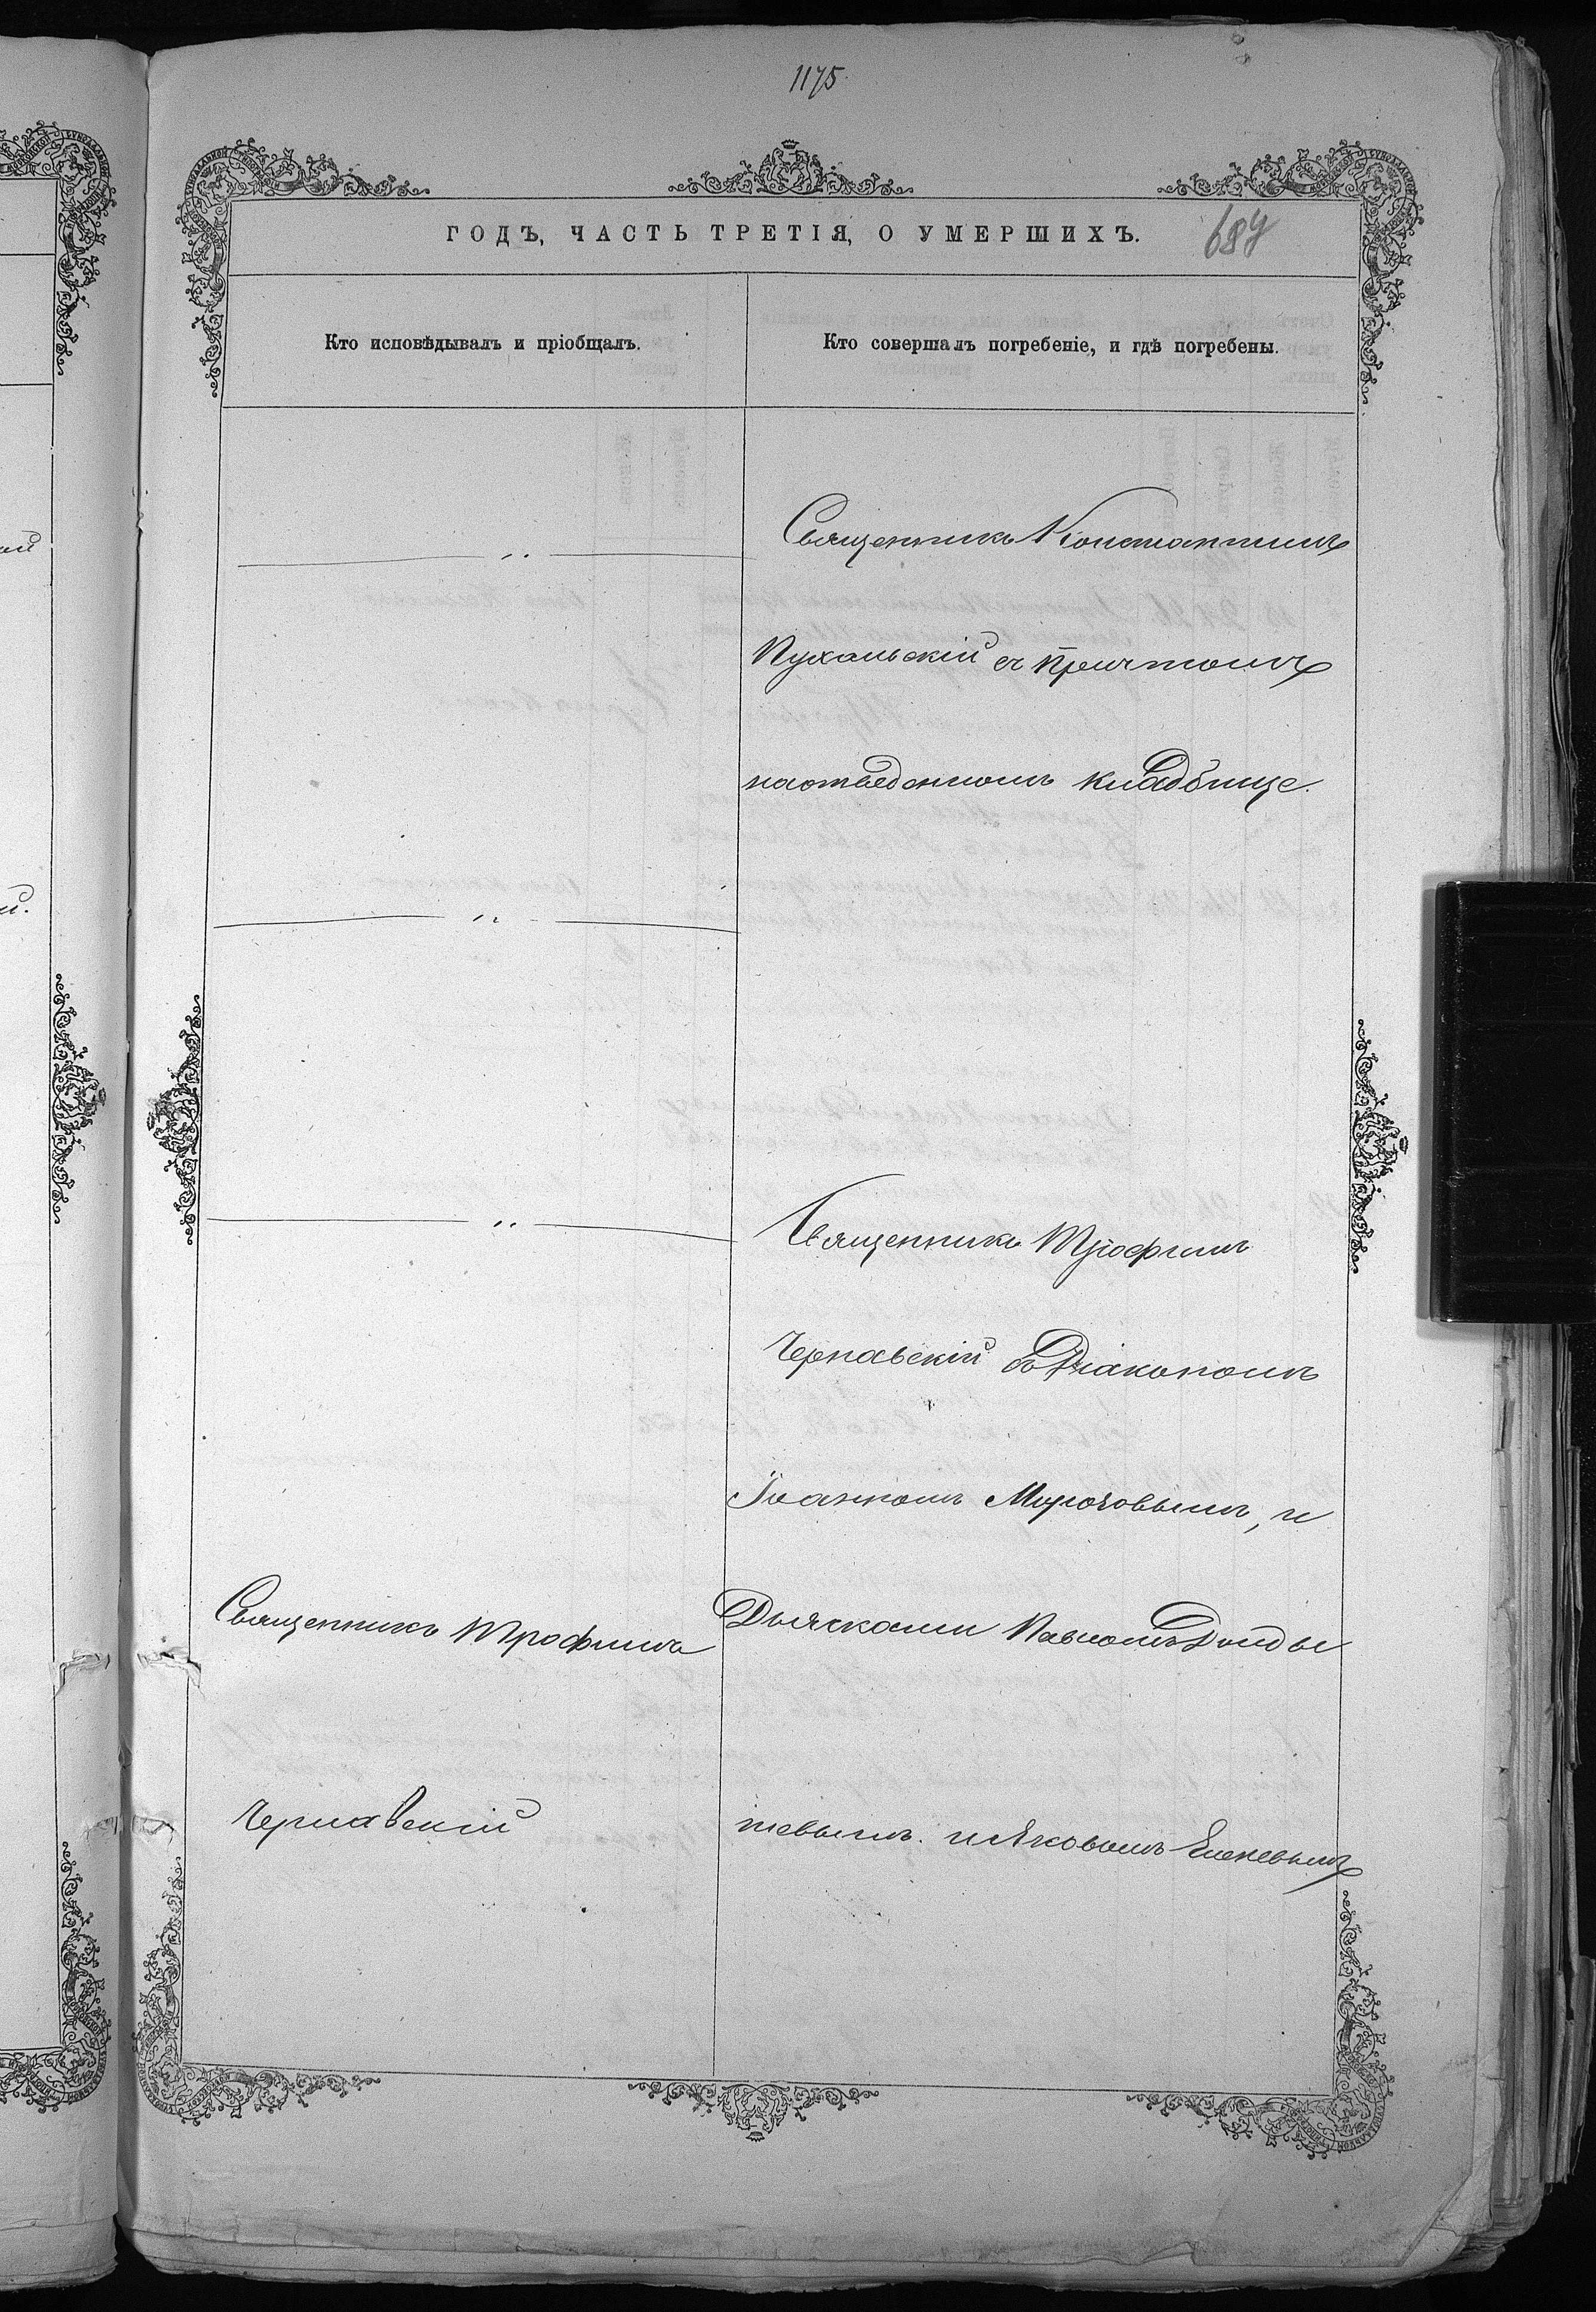 1175
ГОДЪ, ЧАСТЬ ТРЕТІЯ, О УМЕРШИХЪ.
689
Кто исповѣдывалъ и пріобщалъ.
Кто совершалъ погребеніе, и гдѣ погребены.
Священникъ Константинъ
Пухальскій съ причтомъ
на отведенномъ кладбище.
Священникъ Трофимъ
Чернавскій съ Діакономъ
Іоанномъ Морозовымъ, и
Дьячками Павломъ
и Яковомъ
Священникъ Трофимъ
Чернавскій